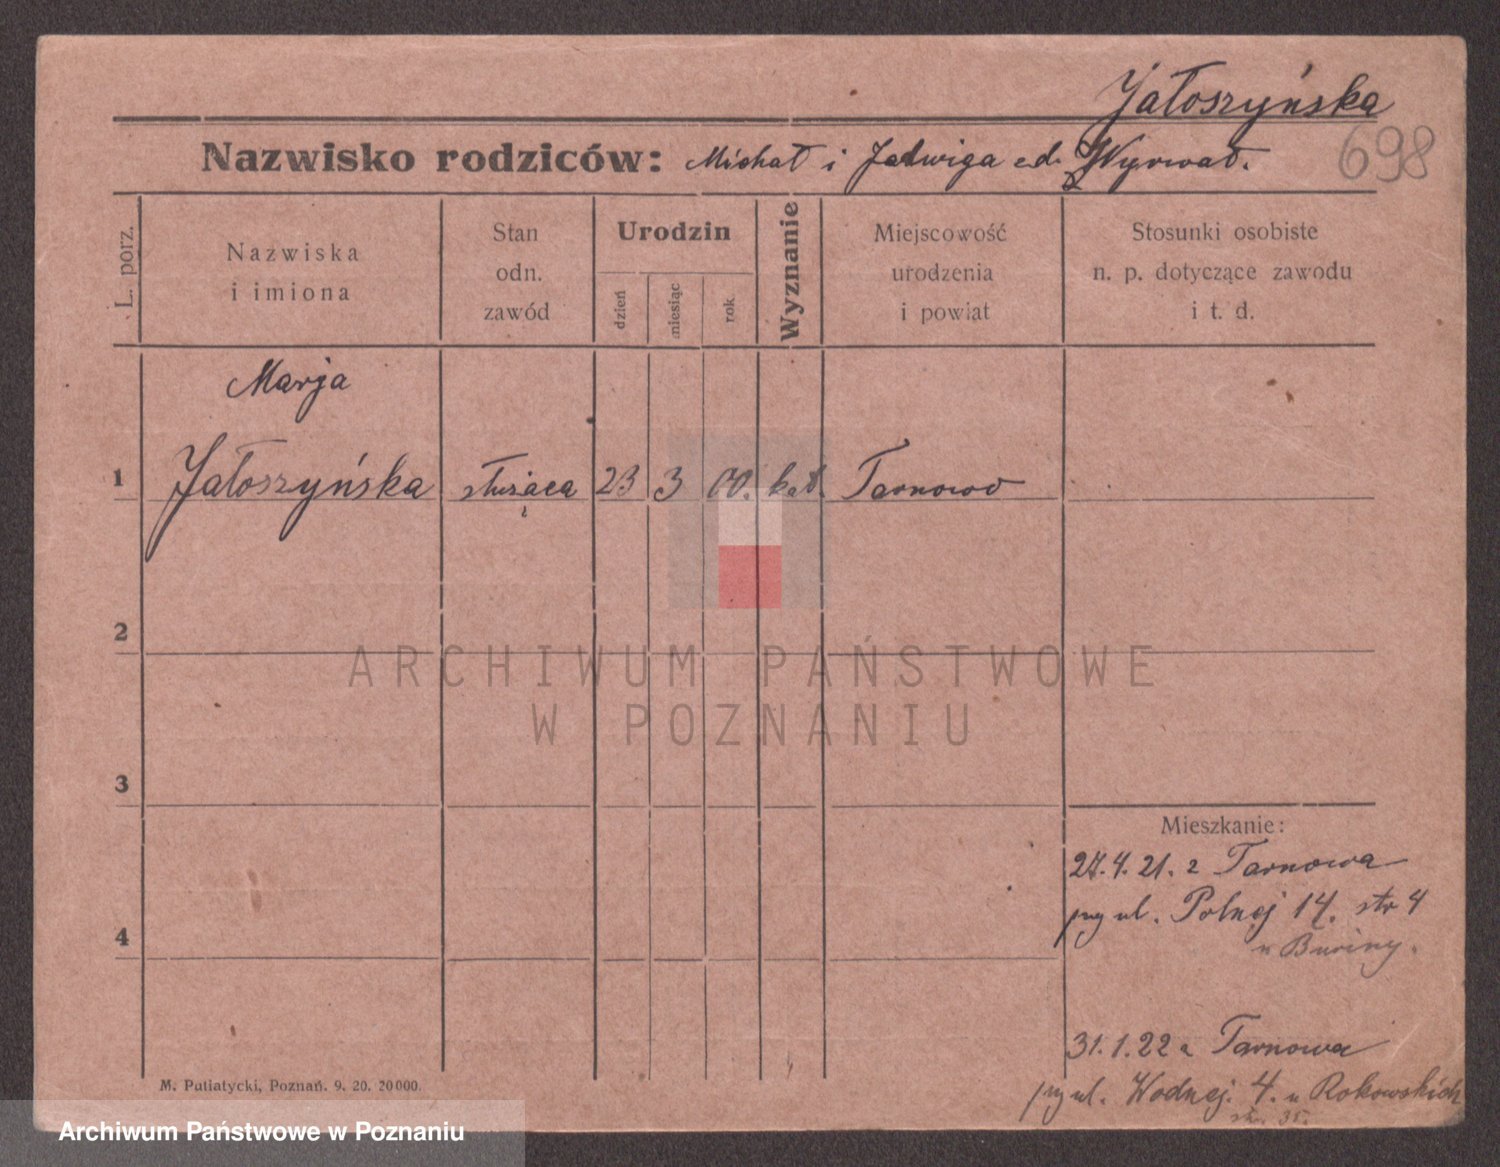 Jałoszyńska
698
Nazwisko rodziców: Michał i Jadwiga
L. porz.
Nazwiska
i imiona
Stan
odn.
zawód
Urodzin
dzień
miesiąc
rok.
Wyznanie
Miejscowość
urodzenia
i powiat
Stosunki osobiste
n. p. dotyczące zawodu
i t. d.
Marja
1 Jałoszyńska służąca 23 3 00. kat. Tarnowo
2
ARCHIWUM PAŃSTWOWE
W POZNANIU
3
Mieszkanie:
27.4.21. z Tarnowa
przy ul. Polnej 14. str 4
u
4
31.1.22 z Tarnowa
przy ul. Wodnej. 4. u Rokowskich
str. 35.
M. Putiatycki, Poznań. 9. 20. 20000.
Archiwum Państwowe w Poznaniu